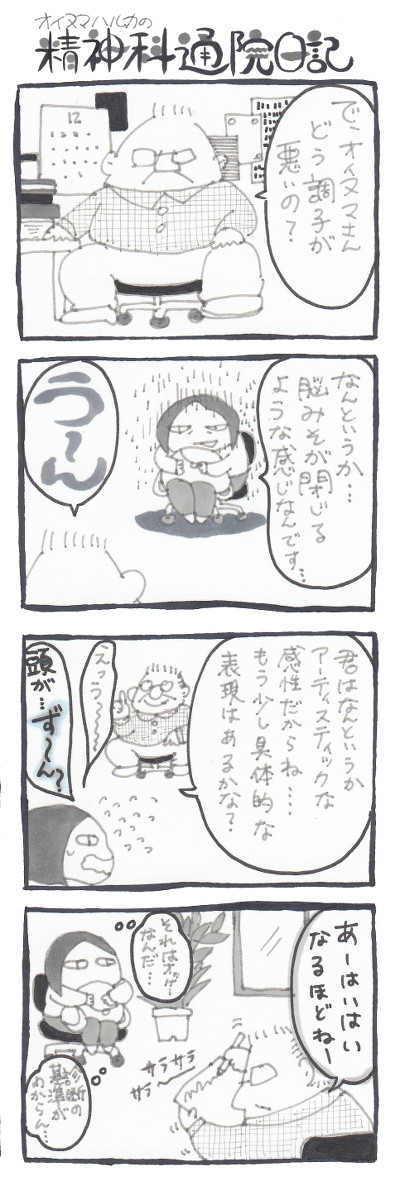 オイヌマハルカの
精神科通院日記
12
で、オイヌマさん
どう調子が
悪いの?
なんというか…
脳みそが閉じる
ような感じなんです…
う〜ん
君はなんというか
アーティスティックな
感性だからね…
もう少し具体的な
表現はあるかな?
えっっ〜〜〜
頭が…ず〜ん?
あーはいはい
なるほどねー
それはオッケー
なんだ…
サラサラ
サラ〜
診断の
基準が
わからん…